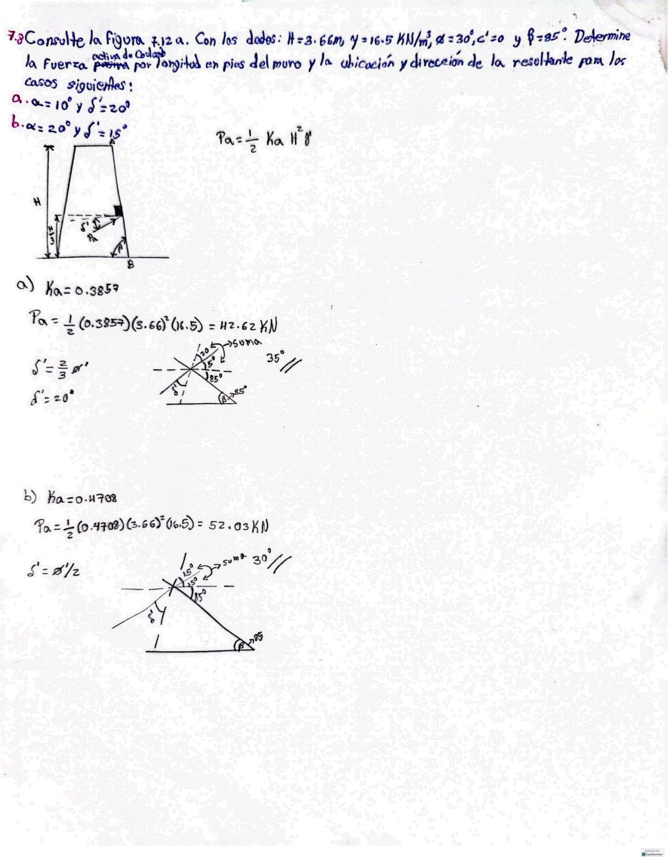 7.8 Consulte la figura 7.12 a. Con los dados: H=3.66m, γ=16.5 KN/m³, ø=30°, c'=0 y β=85°. Determine
la fuerza activa de Coulomb por longitud en pies del muro y la ubicación y dirección de la resultante para los
casos siguientes:
a. α=10° y δ'=20°
b. α=20° y δ'=15°
Pa = 1/2 Ka H² γ
A
H
H/3
δ'
Pa
β
B
a) Ka=0.3857
Pa = 1/2 (0.3857)(3.66)²(16.5) = 42.62 KN
δ' = 2/3 ø'
δ' = 20°
20
suma
5°
85°
35°
δ'
β
85°
b) Ka=0.4708
Pa = 1/2 (0.4708)(3.66)²(16.5) = 52.03 KN
δ' = ø'/2
15°
suma
30°
15°
85°
β
85